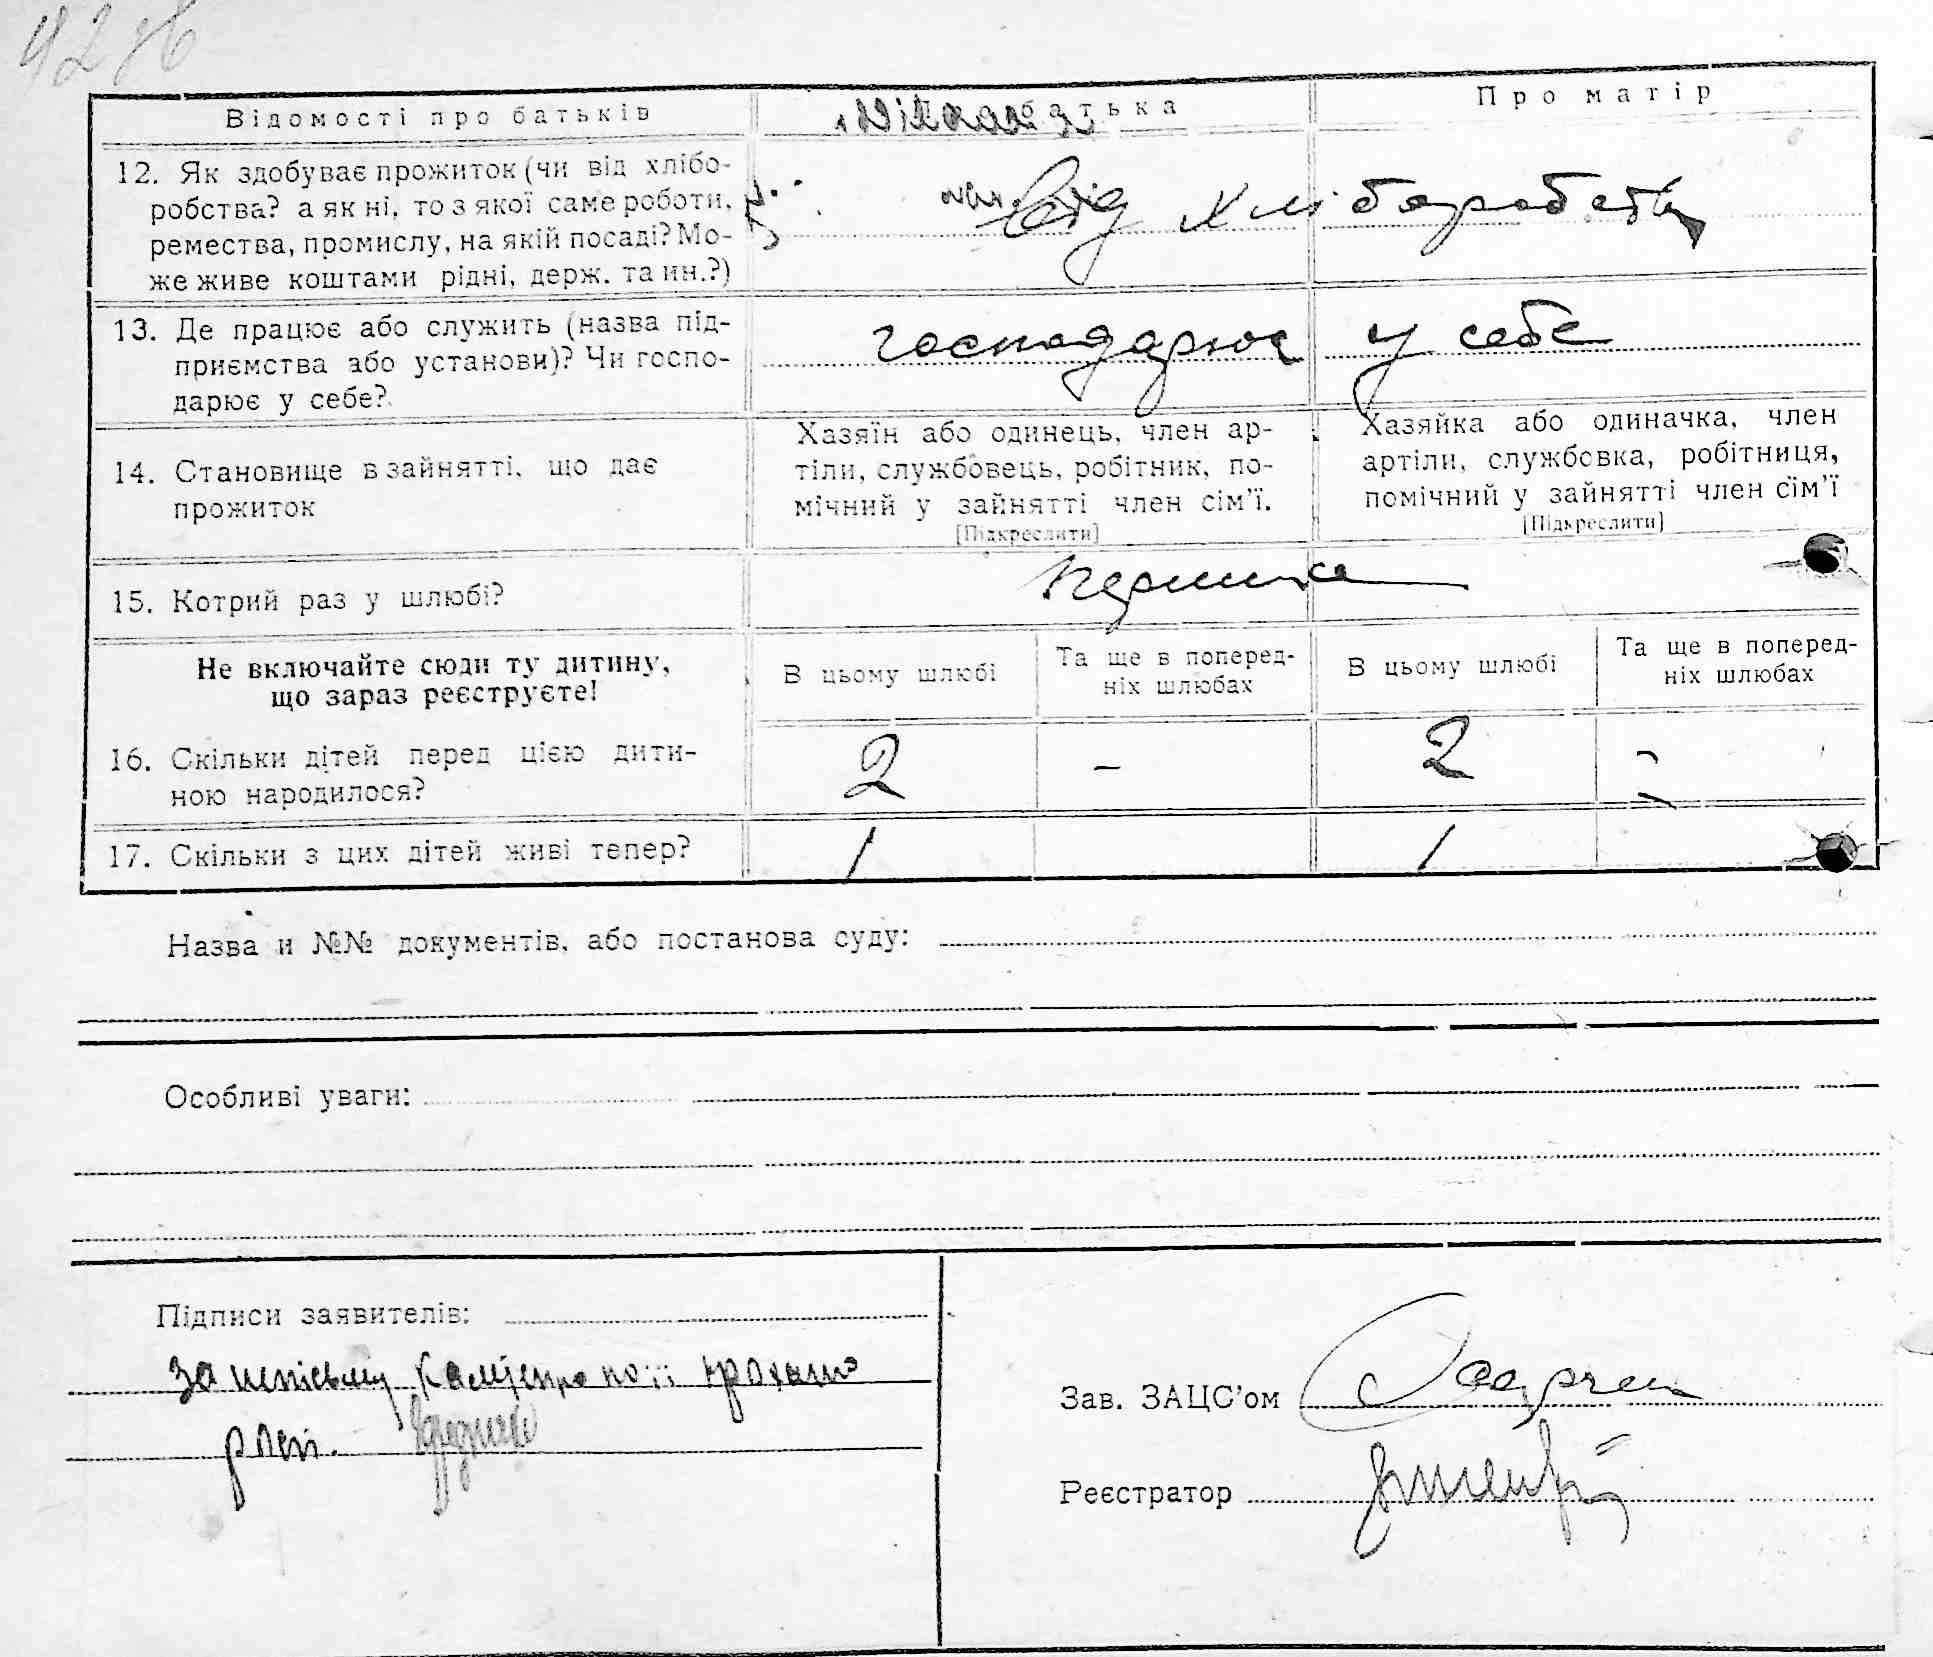 Відомості про батьків Про батька Про матір
12. Як здобуває прожиток (чи від хлібо-
робства? а як ні, то з якої саме роботи,
ремества, промислу, на якій посаді? Мо-
же живе коштами рідні, держ. та ин.?)
Від хліборобства
13. Де працює або служить (назва під-
приємства або установи)? Чи госпо-
дарює у себе?
господарює у себе
14. Становище в зайнятті, що дає
прожиток
Хазяїн або одинець, член ар-
тіли, службовець, робітник, по-
мічний у зайнятті член сім'ї.
[Підкреслити]
Хазяйка або одиначка, член
артіли, службовка, робітниця,
помічний у зайнятті член сім'ї
[Підкреслити]
15. Котрий раз у шлюбі?
Не включайте сюди ту дитину,
що зараз реєструєте!
В цьому шлюбі
Та ще в поперед-
ніх шлюбах
В цьому шлюбі
Та ще в поперед-
ніх шлюбах
16. Скільки дітей перед цією дити-
ною народилося?
2 - 2
17. Скільки з цих дітей живі тепер?
1 1
Назва и №№ документів, або постанова суду:
Особливі уваги:
Підписи заявителів:
Зав. ЗАЦС'ом
Реєстратор